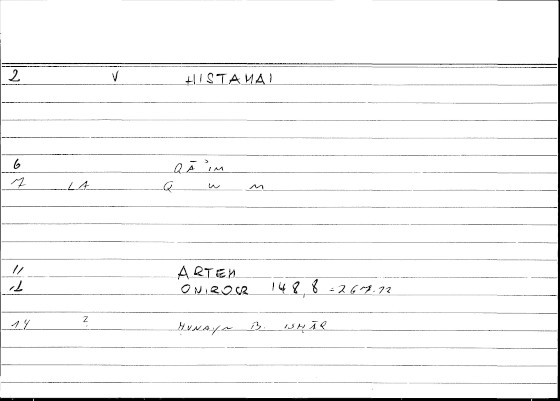 2 V HISTANAI
6 QĀ'IM
7 LA Q W M
11 ARTEM
1 ONIROCR 148,8 = 267.12
14 ? HUNAYN B. ISHĀQ